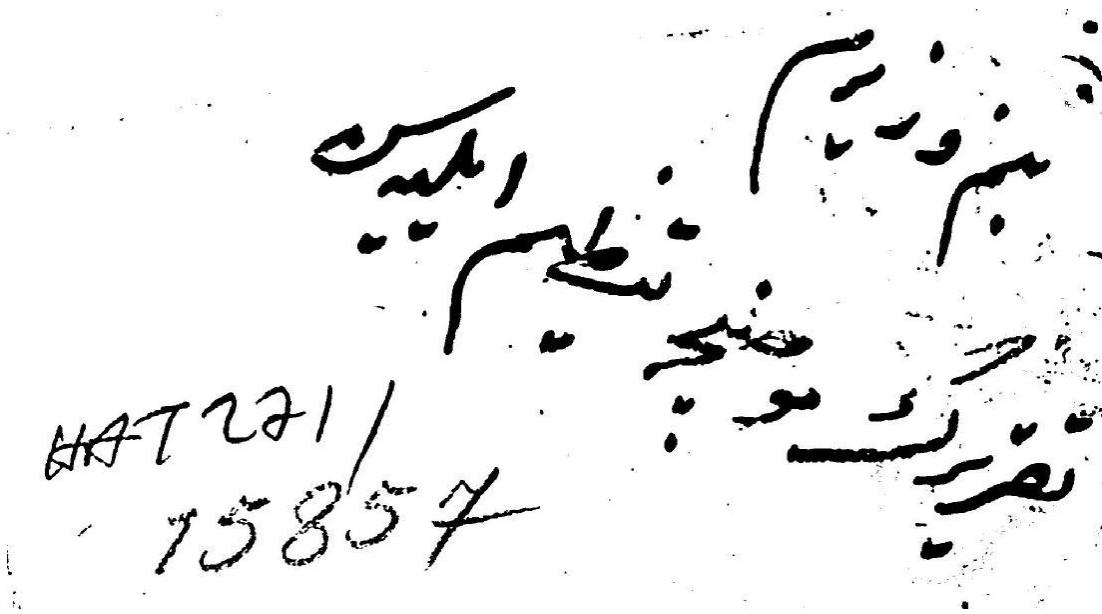 بنم وزيرم
تقريرك موجبنجه تنظيم ايليەسن
HAT 271/
15857